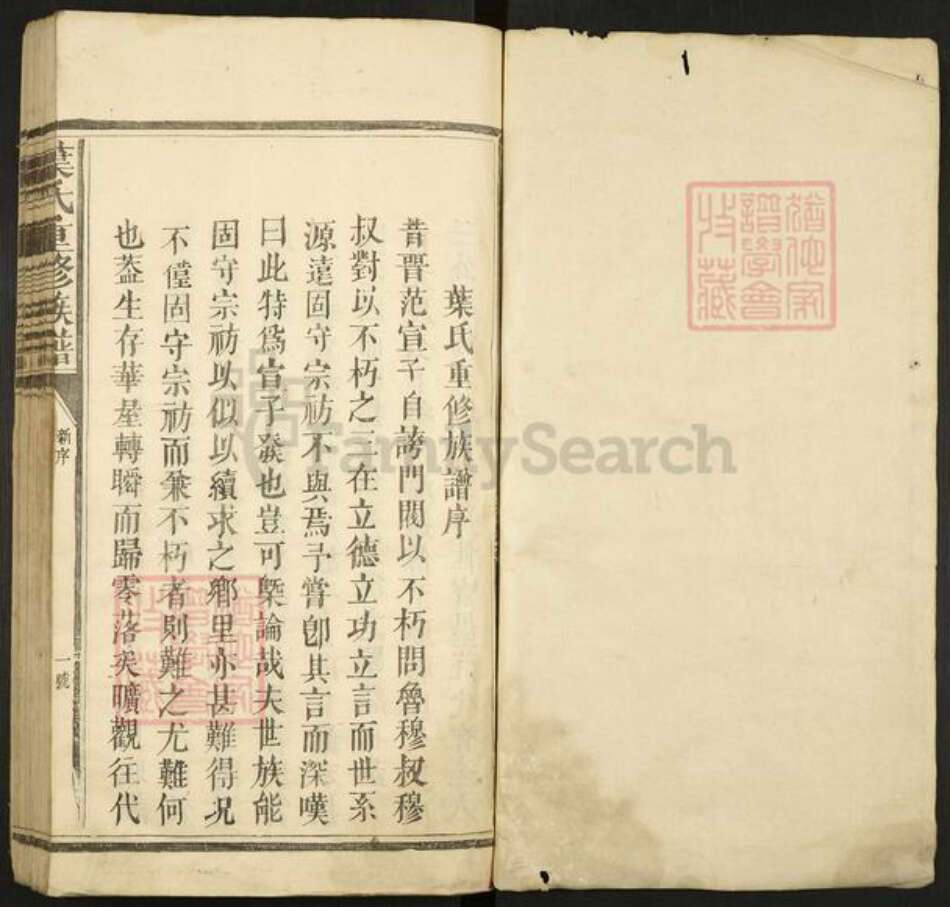 葉氏重修族譜序
昔晋范宣子自誇門閥以不朽問魯穆叔穆
叔對以不朽之三在立德立功立言而世系
源遠固守宗祊不與焉予嘗卽其言而深嘆
曰此特為宣子發也豈可槩論哉夫世族能
固守宗祊以似以續求之鄉里亦甚難得况
不僅固守宗祊而兼不朽者則難之尤難何
也葢生存華屋轉瞬而歸零落矣曠觀往代
葉氏重修族譜
新序
一號
猶他家
譜學會
收藏
猶他家
譜學會
收藏
FamilySearch